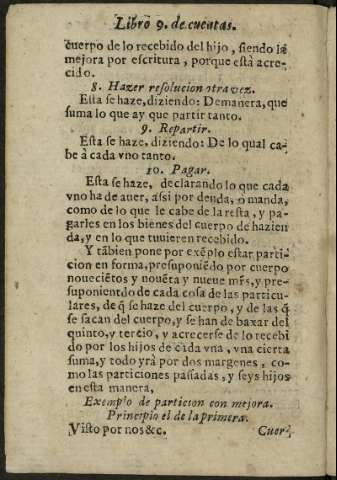 Libro 9. de cuentas.
cuerpo de lo recebido del hijo, siendo la
mejora por escritura, porque està acre-
cido.
8. Hazer resolucion otra vez.
Esta se haze, diziendo: De manera, que
suma lo que ay que partir tanto.
9. Repartir.
Esta se haze, diziendo: De lo qual ca-
be à cada vno tanto.
10. Pagar.
Esta se haze, declarando lo que cada
vno ha de auer, assi por deuda, o manda,
como de lo que le cabe de la resta, y pa-
garles en los bienes del cuerpo de hazien
da, y en lo que tuuieren recebido.
Y tãbien pone por exẽplo estar parti-
cion en forma, presuponiẽdo por cuerpo
noueciẽtos y nouẽta y nueue mrs, y pre-
suponientdo de cada cosa de las particu-
lares, de q̃ se haze del cuerpo, y de las q̃
se sacan del cuerpo, y se han de baxar del
quinto, y tercio, y acrecerse de lo recebi
do por los hijos de cada vna, vna cierta
suma, y todo yrà por dos margenes, co-
mo las particiones passadas, y seys hijos
en esta manera,
Exemplo de particion con mejora.
Principio el de la primera.
Visto por nos &c. Cuer-